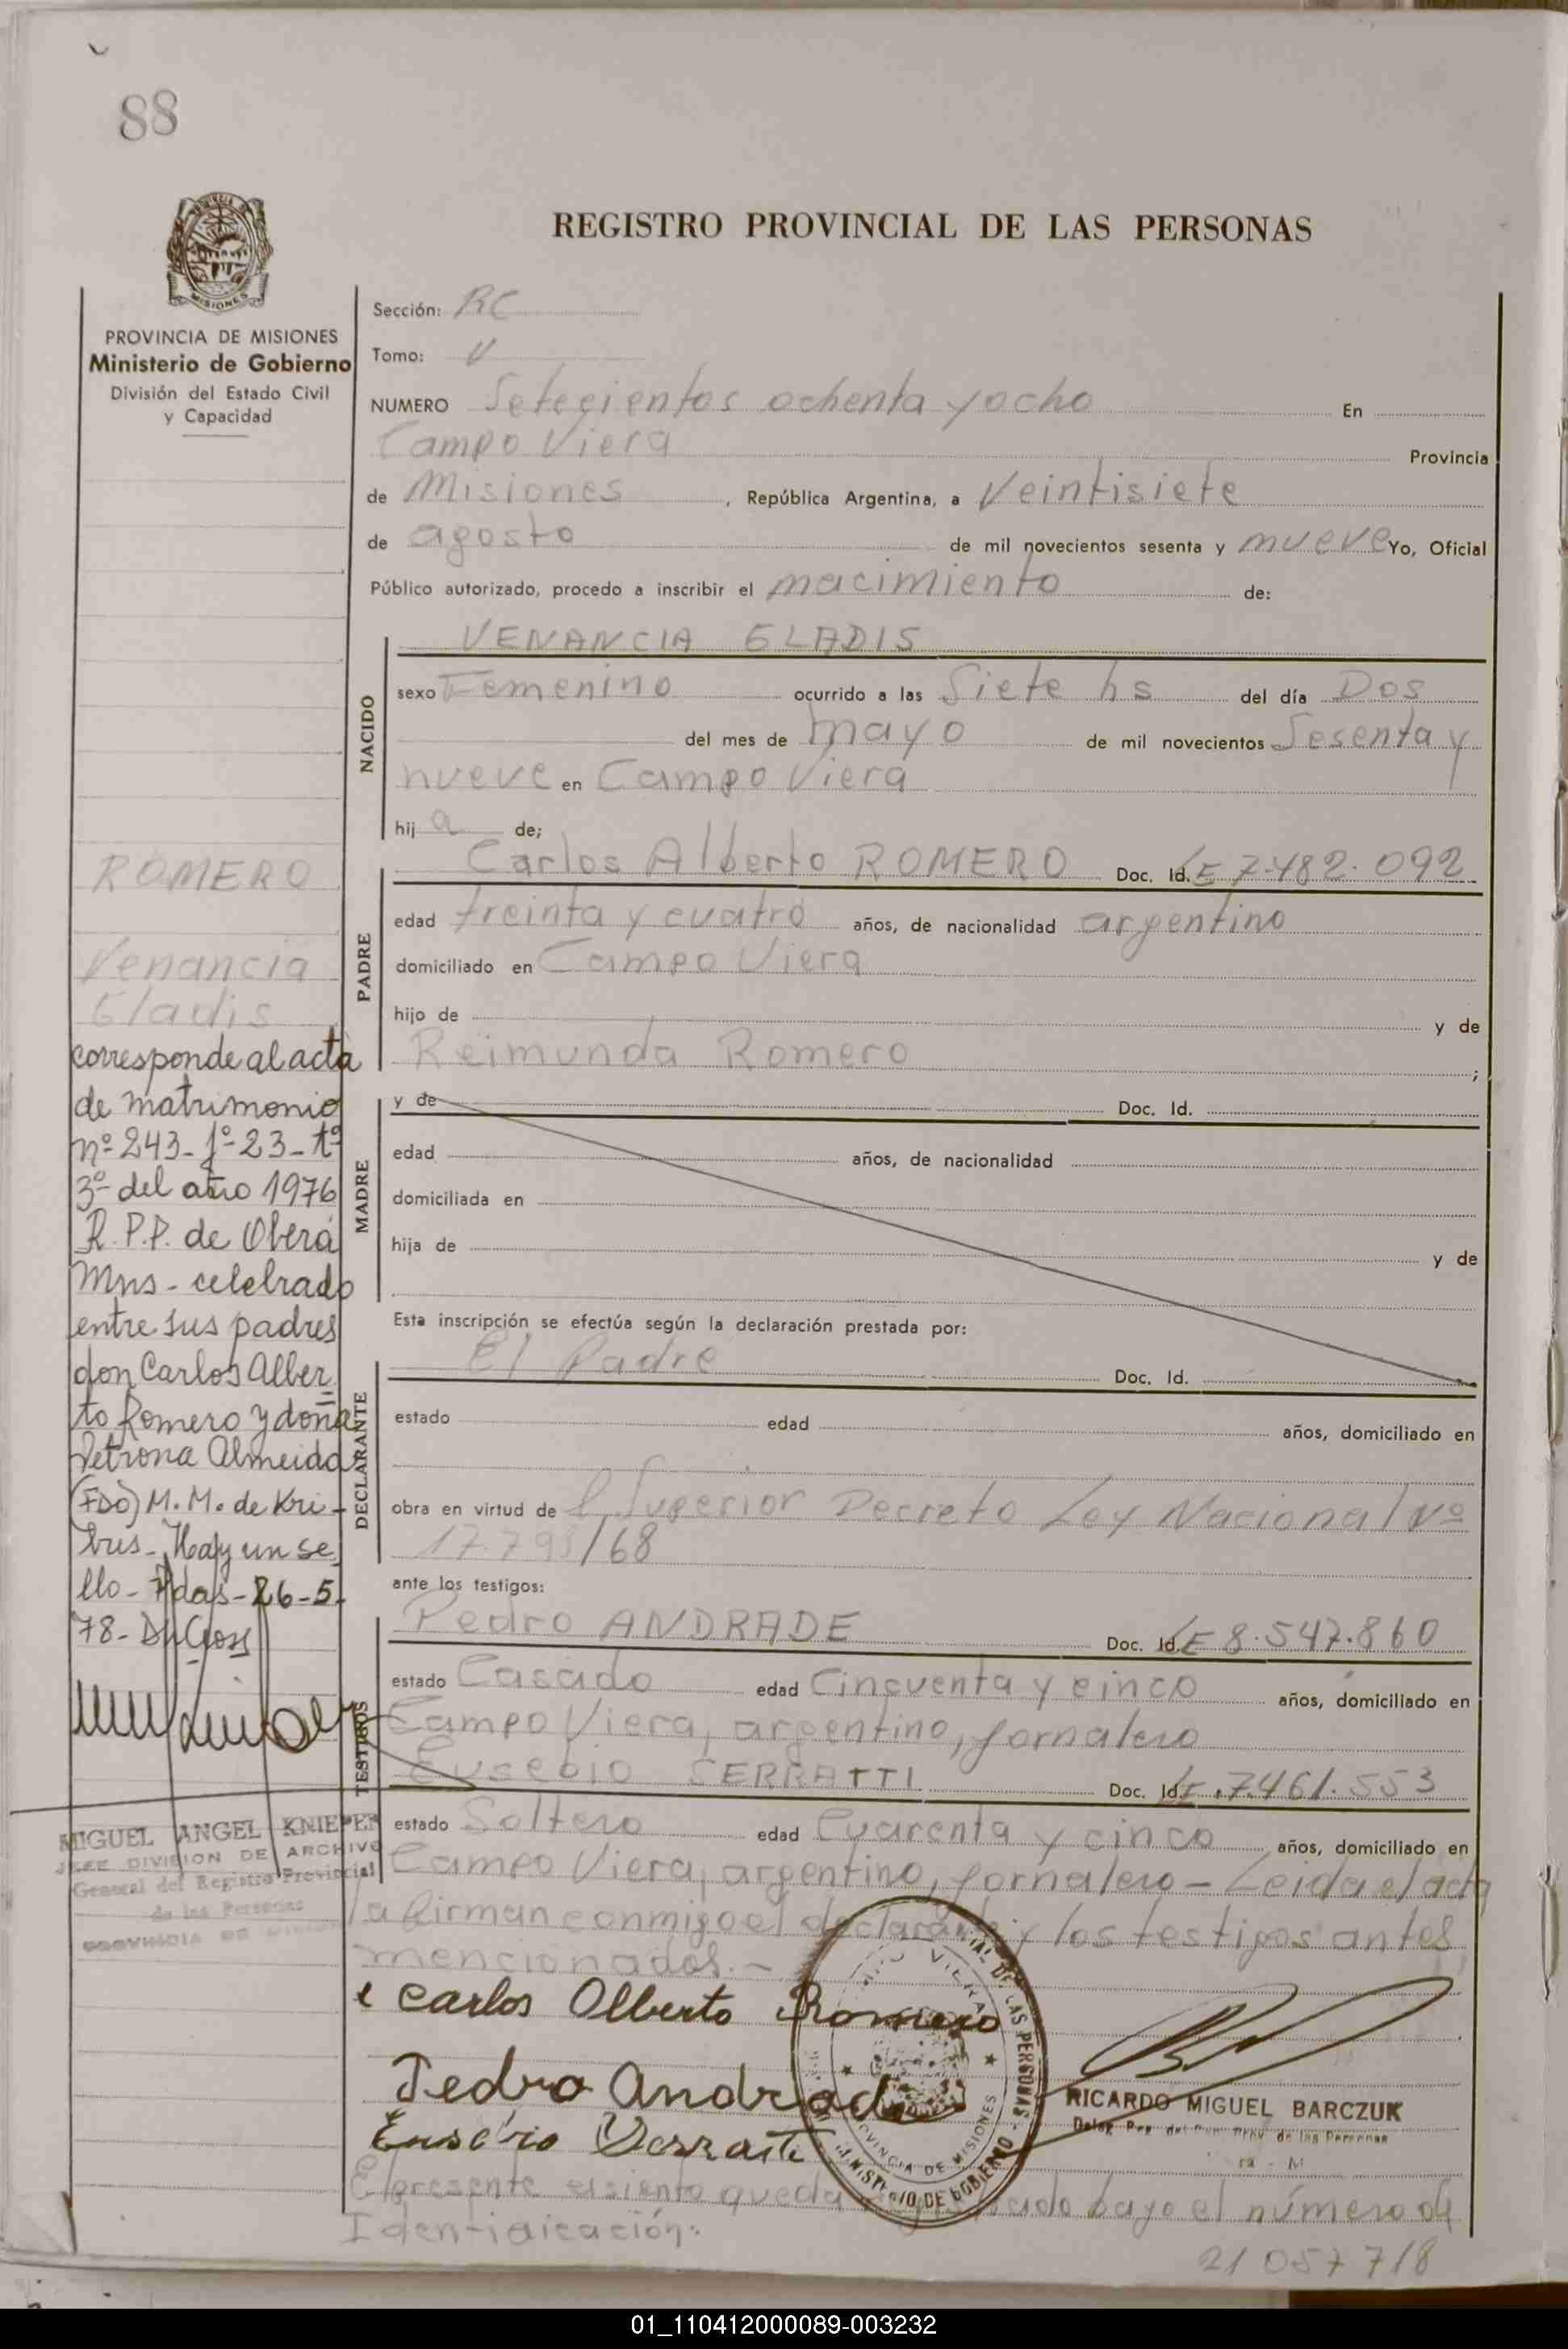 88
REGISTRO PROVINCIAL DE LAS PERSONAS
MISIONES
PROVINCIA DE MISIONES
Ministerio de Gobierno
División del Estado Civil
y Capacidad
Sección: RC
Tomo: V
NUMERO Setecientos ochenta y ocho En
Campo Viera Provincia
de Misiones, República Argentina, a Veintisiete
de agosto de mil novecientos sesenta y nueve Yo, Oficial
Público autorizado, procedo a inscribir el nacimiento de:
NACIDO
VENANCIA GLADIS
sexo Femenino ocurrido a las Siete hs del día Dos
del mes de mayo de mil novecientos Sesenta y
nueve en Campo Viera
hija de;
PADRE
Carlos Alberto ROMERO Doc. Id. LE 7.482.092
edad treinta y cuatro años, de nacionalidad argentino
domiciliado en Campo Viera
hijo de y de
Reimunda Romero ;
MADRE
y de Doc. Id.
edad años, de nacionalidad
domiciliada en
hija de y de
Esta inscripción se efectúa según la declaración prestada por:
DECLARANTE
El Padre Doc. Id.
estado edad años, domiciliado en
obra en virtud de l Superior Decreto Ley Nacional Nº
/68
ante los testigos:
TESTIGOS
Pedro ANDRADE Doc. Id. LE 8.547.860
estado Casado edad Cincuenta y cinco años, domiciliado en
Campo Viera, argentino, jornalero
Eusebio SERRATTI Doc. Id. LE.7.461.553
estado Soltero edad Cuarenta y cinco años, domiciliado en
Campo Viera, argentino, jornalero - Leida el acta
la firman conmigo el declarante y los testigos antes
mencionados.-
Carlos Alberto Romero
Pedro Andrade
RICARDO MIGUEL BARCZUK
El presente asiento queda bajo el número de
Identificación.
21 057 718
ROMERO
Venancia
Gladis
corresponde al acta
de matrimonio
nº 243- fº-23-tº
3º del año 1976
R.P.P. de Oberá
Mns - celebrado
entre sus padres
don Carlos Alber
to Romero y doña
Petrona Almeida
(FDO) M.M. de Kri-
bus- Hay un se
llo- Pdas-26-5-
78-
MIGUEL ANGEL KNIEPER
JEFE DIVISION DE ARCHIVO
General del Registro Provincial
de las Personas
PROVINCIA DE
01_110412000089-003232